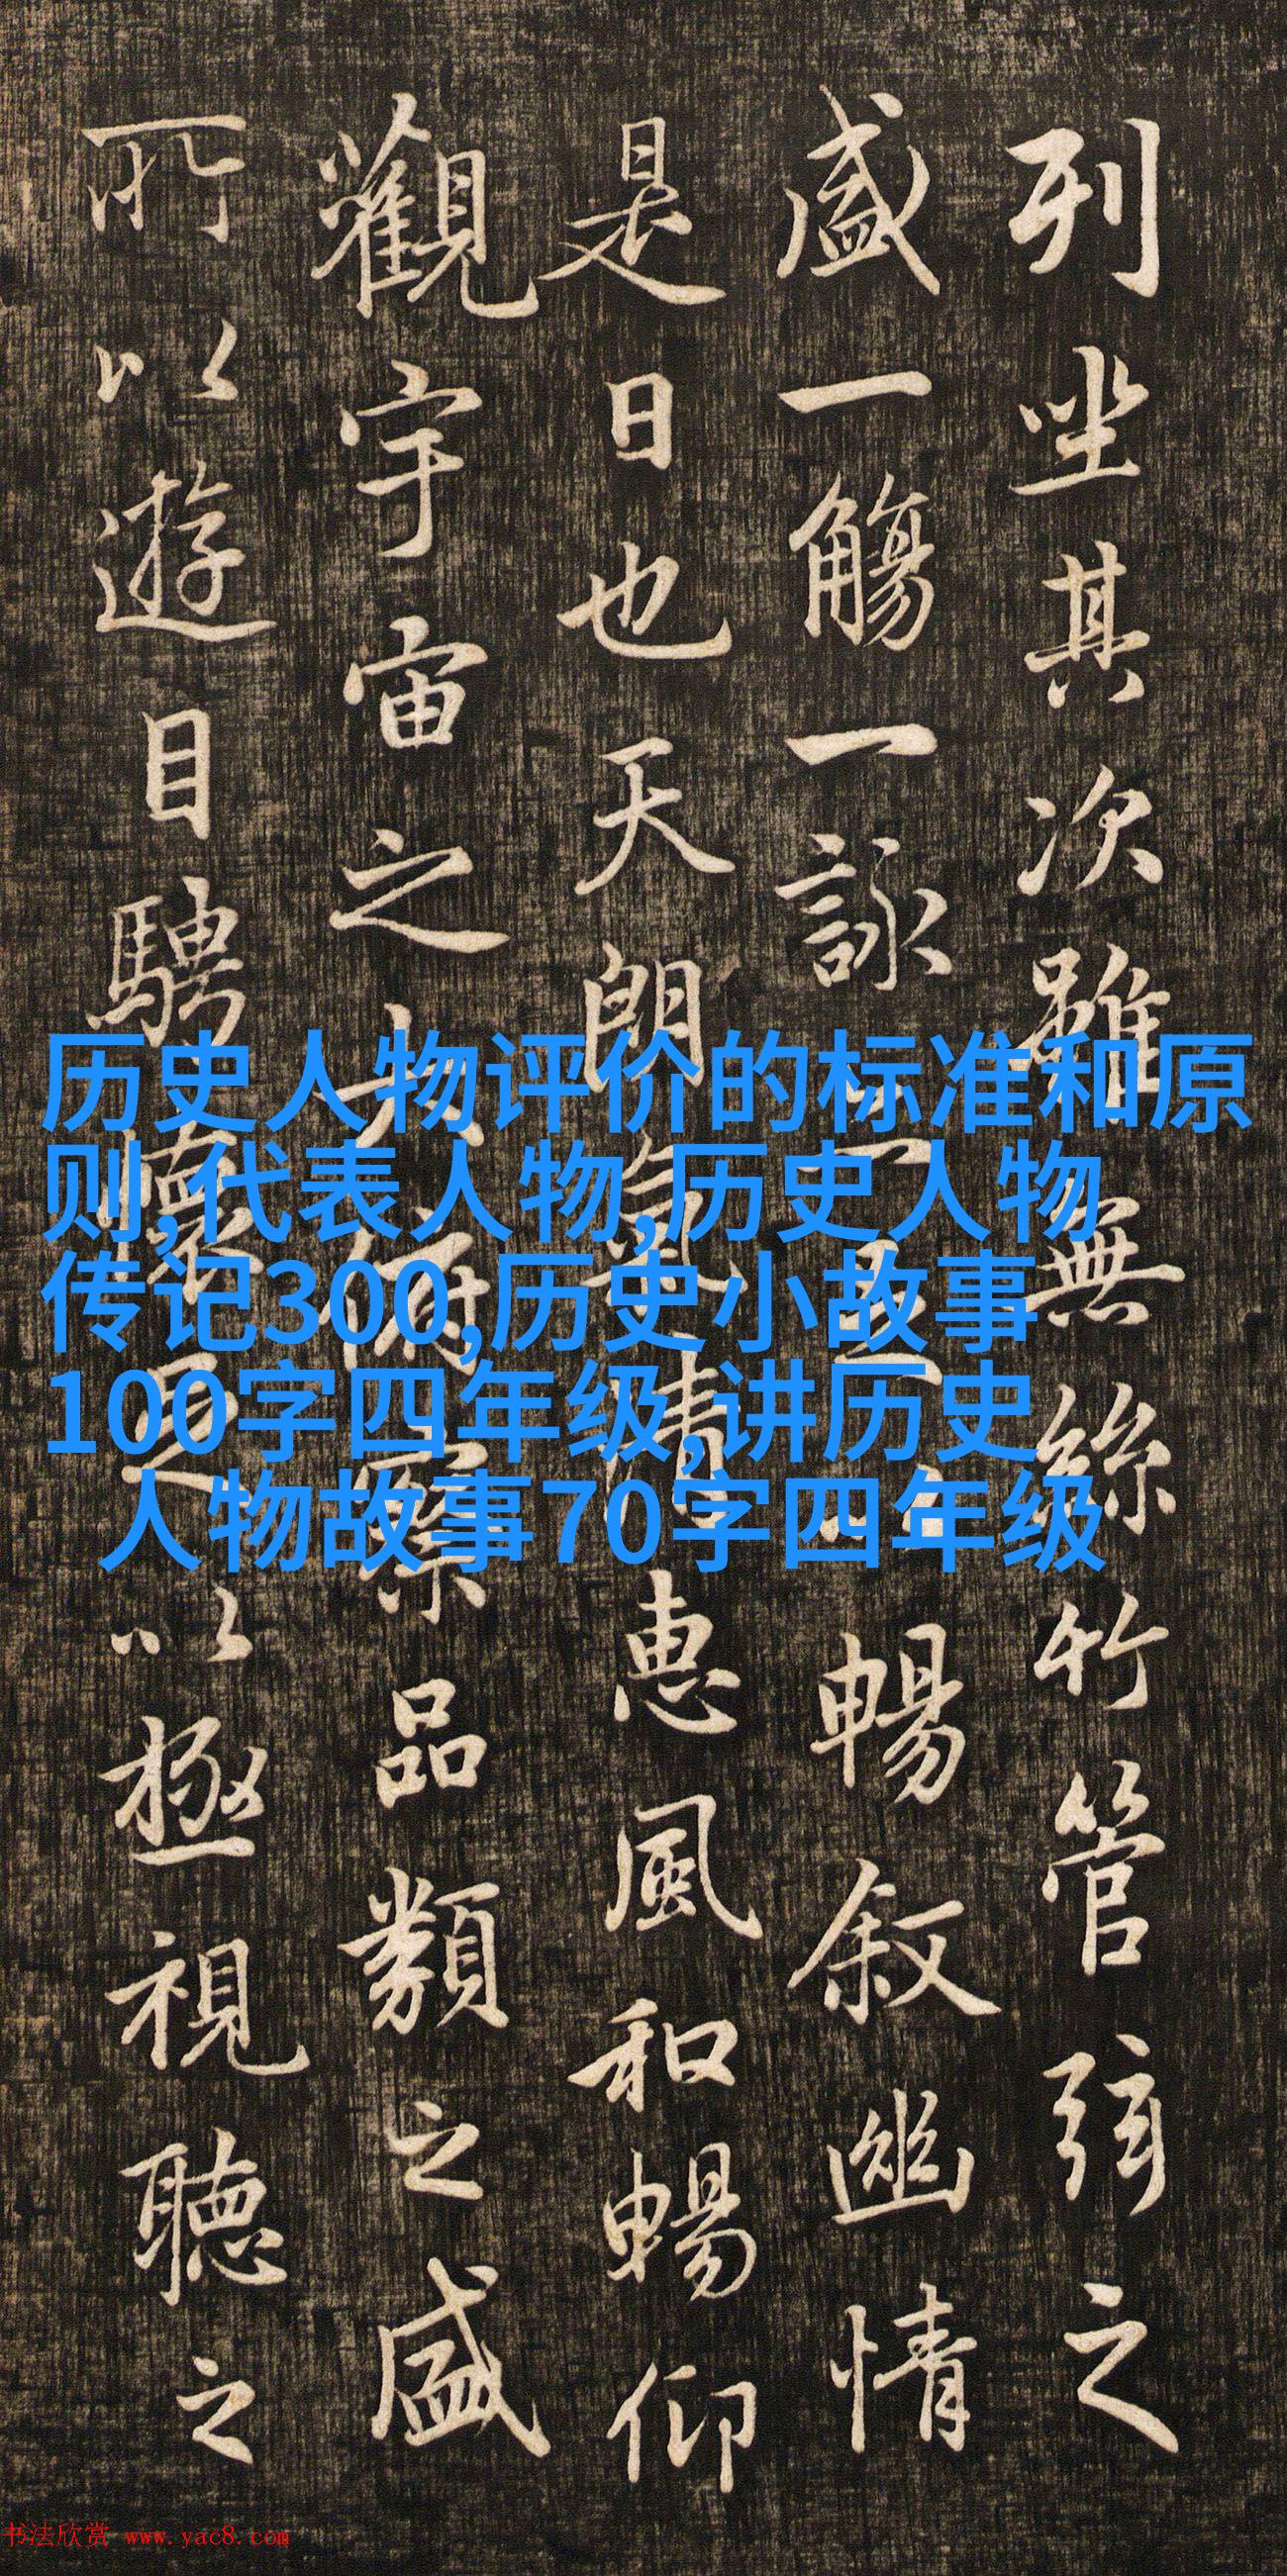 列坐其次雖無絲竹管弦之
盛一觴一詠暢叙幽情
是日也天朗氣清惠風和暢仰
觀宇宙之大俯察品類之盛
所以遊目騁懷足以極視聽之
历史人物评价的标准和原
则,代表人物,历史人物
传记300,历史小故事
100字四年级,讲历史
人物故事70字四年级
书法欣赏 www.yac8.com